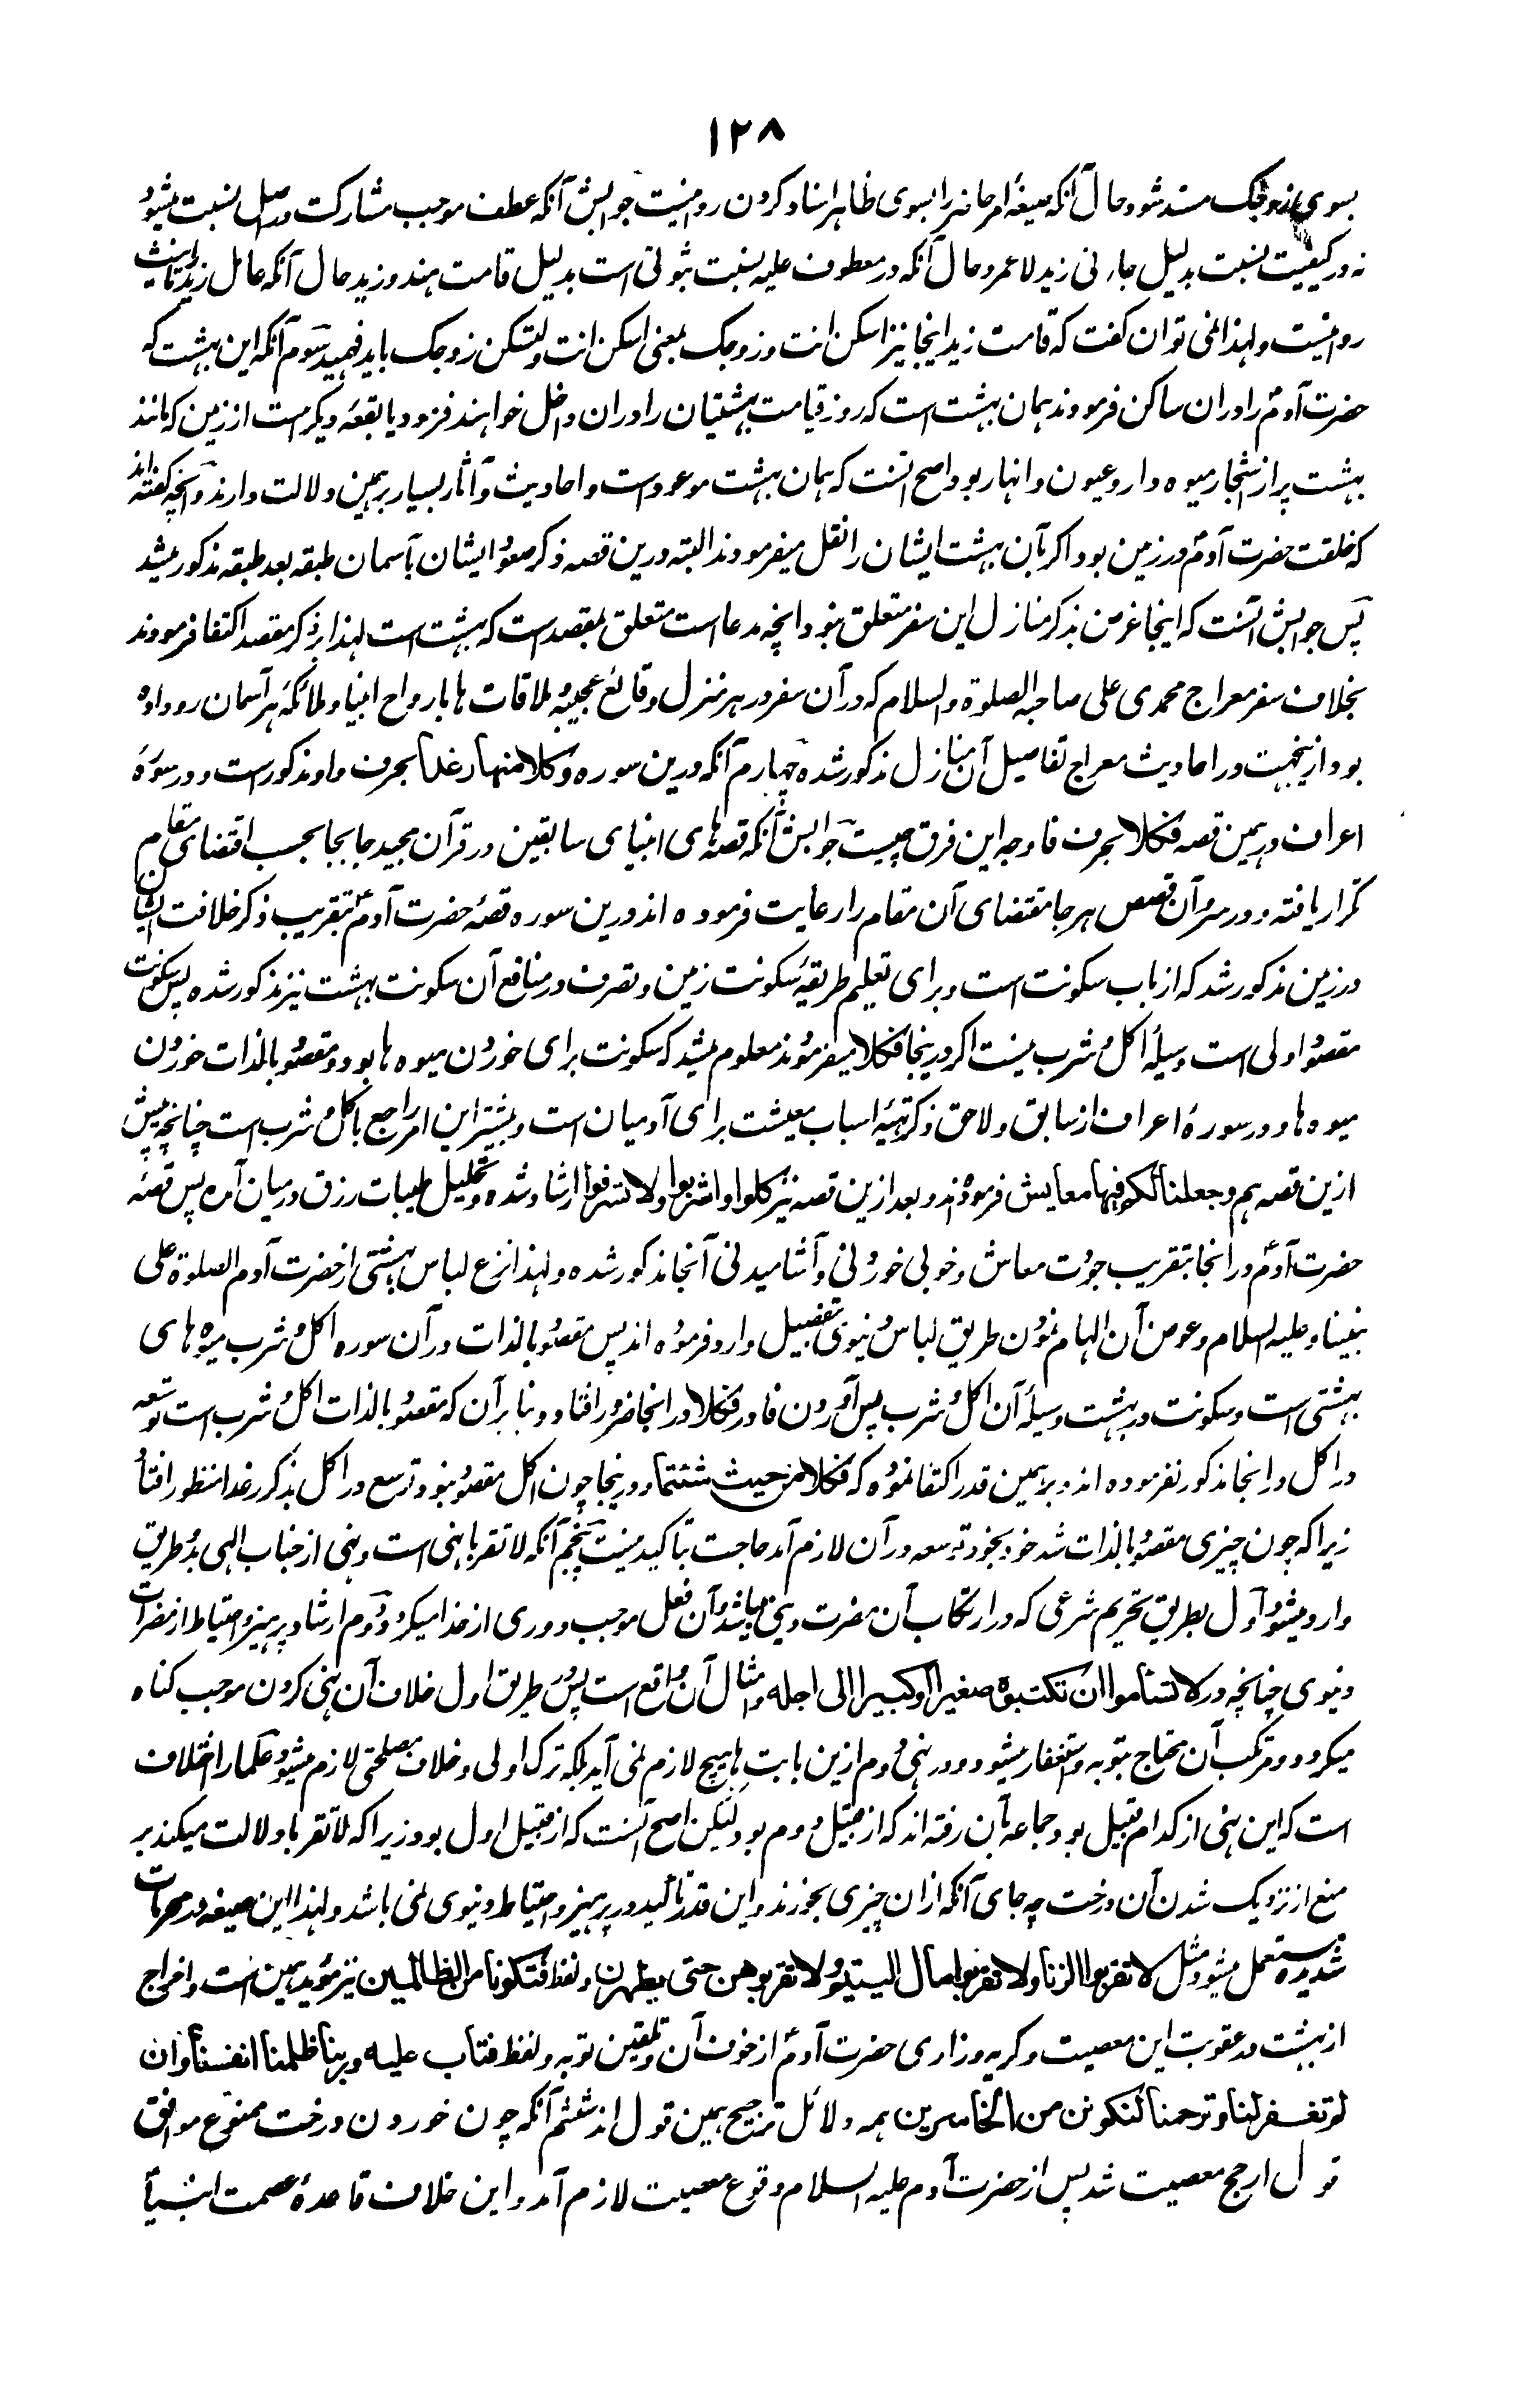 ۱۲۸
بسوی زوجک مسند شود حال آنکه صیغهٔ امر حاضر را بسوی ظاهر اسناد کردن روا نیست جوابش آنکه عطف موجب مشارکت در اصل نسبت میشود
نه در کیفیت نسبت بدلیل جاءنی زید لا عمرو حال آنکه در معطوف علیه نسبت ثبوتی است بدلیل قامت هند و زید حال آنکه عامل زید را تانیث
روا نیست و لهذا نمی توان گفت که قامت زید اینجا نیز اسکن انت و زوجک بمعنی اسکن انت و لتسکن زوجک باید فهمید سوم آنکه این بهشت که
حضرت آدم را دران ساکن فرمودند همان بهشت است که روز قیامت بهشتیان را دران داخل خواهند فرمود یا بقعه دیگر است از زمین که مانند
بهشت پر از اشجار میوه دار و عیون و انهار بود اصح آنست که همان بهشت موعود است و احادیث و آثار بسیار بر همین دلالت دارند و آنچه گفته اند
که خلقت حضرت آدم در زمین بود اگر بآن بهشت ایشان را نقل میفرمودند البته درین قصه ذکر صعود ایشان بآسمان طبقه بعد طبقه مذکور میشد
پس جوابش آنست که اینجا غرض بذکر منازل این سفر متعلق نبود آنچه مدعا است متعلق بمقصد است که بهشت است لهذا بر ذکر مقصد اکتفا فرمودند
بخلاف سفر معراج محمدی علی صاحبه الصلوة والسلام که در آن سفر در هر منزل وقائع عجیبه و ملاقات ها بارواح انبیا و ملائکهٔ هر آسمان رو داده
بود ازینجهت در احادیث معراج تفاصیل آن منازل مذکور شده چهارم آنکه درین سوره وکلا منها رغدا بحرف واو مذکور است و در سورهٔ
اعراف در همین قصه فکلا بحرف فا وجه این فرق چیست جوابش آنکه قصه های انبیای سابقین در قرآن مجید جابجا بحسب اقتضای مقام
تکرار یافته و در سرد آن قصص هر جا مقتضای آن مقام را رعایت فرموده اند درین سوره قصهٔ حضرت آدم بتقریب ذکر خلافت ایشان
در زمین مذکور شد که از باب سکونت است و برای تعلیم طریقهٔ سکونت زمین و تصرف در منافع آن سکونت بهشت نیز مذکور شده پس سکونت
مقصود اولی است وسیلهٔ اکل و شرب نیست اگر درینجا فکلا میفرمودند معلوم میشد که سکونت برای خوردن میوه ها بود و مقصود بالذات خوردن
میوه ها و در سورهٔ اعراف از سابق و لاحق ذکر تهیهٔ اسباب معیشت برای آدمیان است و بیشتر این امر راجع باکل و شرب است چنانچه پیش
ازین قصه هم وجعلنا لکم فیها معایش فرموده اند و بعد ازین قصه نیز کلوا واشربوا ولا تسرفوا ارشاد شده و تحلیل طیبات رزق درمیان آمده پس قصهٔ
حضرت آدم در آنجا بتقریب جودت معاش و خوبی خوردنی و آشامیدنی آنجا مذکور شده و لهذا نزع لباس بهشتی از حضرت آدم الصلوة علی
نبینا و علیه السلام و عوض آن الهام نمودن طریق لباس دنیوی بتفصیل وارد فرموده اند پس مقصود بالذات در آن سوره اکل و شرب میوه های
بهشتی است و سکونت در بهشت وسیلهٔ آن اکل و شرب پس آوردن فا در فکلا در آنجا ضرور افتاد و بنا بر آن که مقصود بالذات اکل و شرب است توسعه
در اکل در آنجا مذکور نفرموده اند و بر همین قدر اکتفا نموده که فکلا من حیث شئتما و درینجا چون اکل مقصود نبود توسع در اکل بذکر رغدا منظور افتاد
زیرا که چون چیزی مقصود بالذات شد خود بخود توسعه در آن لازم آمد حاجت بتاکید نیست پنجم آنکه لا تقربا نهی است و نهی از جناب الهی بدو طریق
وارد میشود اول بطریق تحریم شرعی که در ارتکاب آن مضرت دینی میباشد و آن فعل موجب دوری از خدا میگردد دوم ارشاد پرهیز و احتیاط از مضرات
دنیوی چنانچه در ولا تسئاموا ان تکتبوه صغیرا او کبیرا الی اجله و امثال آن واقع است پس در طریق اول خلاف آن نهی کردن موجب گناه
میگردد و مرتکب آن محتاج بتوبه و استغفار میشود و در نهی دوم ازین بابت ها هیچ لازم نمی آید بلکه ترک اولی و خلاف مصلحتی لازم میشود علما را اختلاف
است که این نهی از کدام قبیل بود جماعه بآن رفته اند که از قبیل دوم بود لیکن اصح آنست که از قبیل اول بود زیرا که لا تقربا دلالت میکند بر
منع از نزدیک شدن آن درخت چه جای آنکه ازان چیزی بخورند و این قدر تاکید در پرهیز و احتیاط دنیوی نمی باشد و لهذا این صیغه در محرمات
شدیده مستعمل میشود مثل لا تقربوا الزنا و لا تقربوا مال الیتیم و لا تقربوهن حتی یطهرن و لفظ فتکونا من الظالمین نیز موید همین است و اخراج
از بهشت در عقوبت این معصیت و گریه و زاری حضرت آدم از خوف آن و تلقین توبه و لفظ فتاب علیه و ربنا ظلمنا انفسنا وان
لم تغفر لنا وترحمنا لنکونن من الخاسرین همه دلائل ترجیح همین قول اند ششم آنکه چون خوردن درخت ممنوع موافق
قول ارجح معصیت شد پس از حضرت آدم علیه السلام وقوع معصیت لازم آمد و این خلاف قاعدهٔ عصمت انبیا